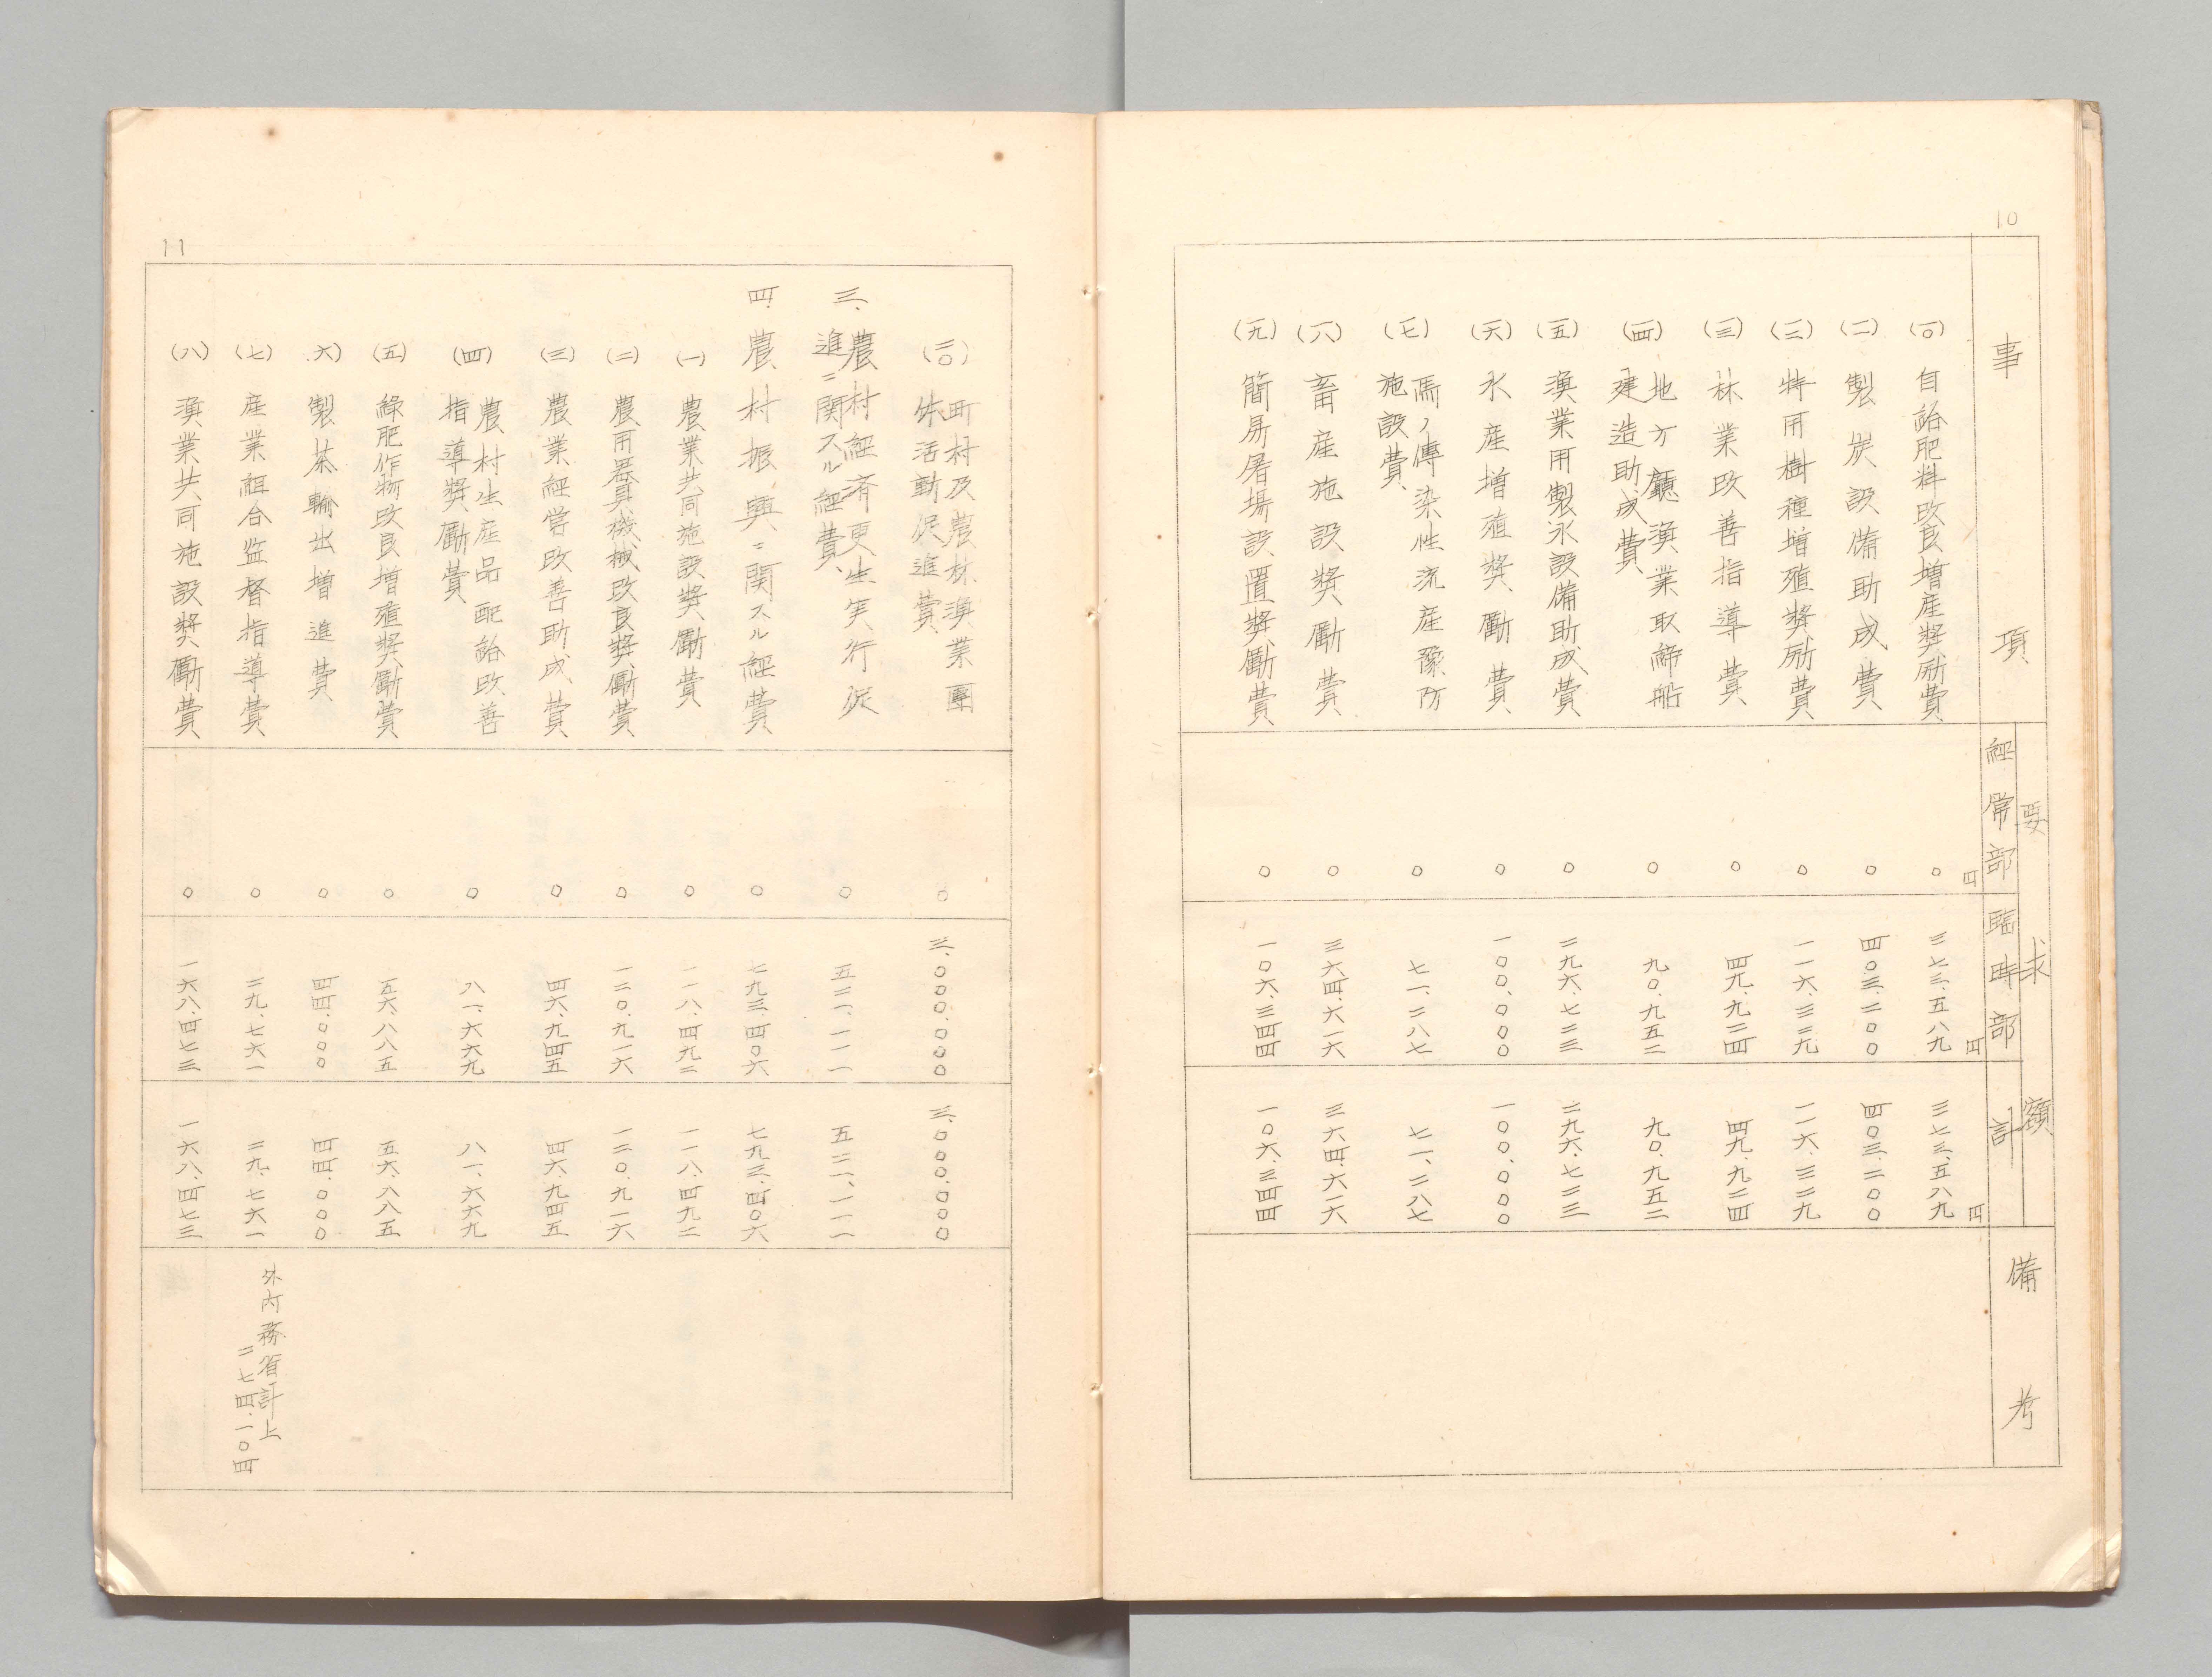 10
事項
要求額
經常部
臨時部
計
備考
円
円
円
(一〇) 自給肥料改良増産奬励費 〇 三七三.五八九 三七三.五八九
(一一) 製炭設備助成費 〇 四〇三.二〇〇 四〇三.二〇〇
(一二) 特用樹種増殖奬励費 〇 一一六.三二九 一一六.三二九
(一三) 林業改善指導費 〇 四九.九二四 四九.九二四
(一四) 地方廳漁業取締船
建造助成費 〇 九〇.九五二 九〇.九五二
(一五) 漁業用製氷設備助成費 〇 二九六.七二三 二九六.七二三
(一六) 水産増殖奬勵費 〇 一〇〇.〇〇〇 一〇〇.〇〇〇
(一七) 馬ノ傳染性流産豫防
施設費 〇 七一.二八七 七一.二八七
(一八) 畜産施設奬勵費 〇 三六四.六一六 三六四.六一六
(一九) 簡易屠場設置奬勵費 〇 一〇六.三四四 一〇六.三四四
11
(二〇) 町村及農林漁業團
体活動促進費 〇 三.〇〇〇.〇〇〇 三.〇〇〇.〇〇〇
三、農村経済更生実行促
進ニ関スル経費 〇 五二一.一一一 五二一.一一一
四、農村振興ニ関スル経費 〇 七九三.四〇六 七九三.四〇六
(一) 農業共同施設奬勵費 〇 一一八.四九二 一一八.四九二
(二) 農用器具機械改良奬勵費 〇 一二〇.九一六 一二〇.九一六
(三) 農業経営改善助成費 〇 四六.九四五 四六.九四五
(四) 農村生産品配給改善
指導奬勵費 〇 八一.六六九 八一.六六九
(五) 緑肥作物改良増殖奬勵費 〇 五六.八八五 五六.八八五
(六) 製茶輸出増進費 〇 四四.〇〇〇 四四.〇〇〇
(七) 産業組合監督指導費 〇 二九.七六一 二九.七六一 外内務省計上
二七四.一〇四
(八) 漁業共同施設奬勵費 〇 一六八.四七三 一六八.四七三